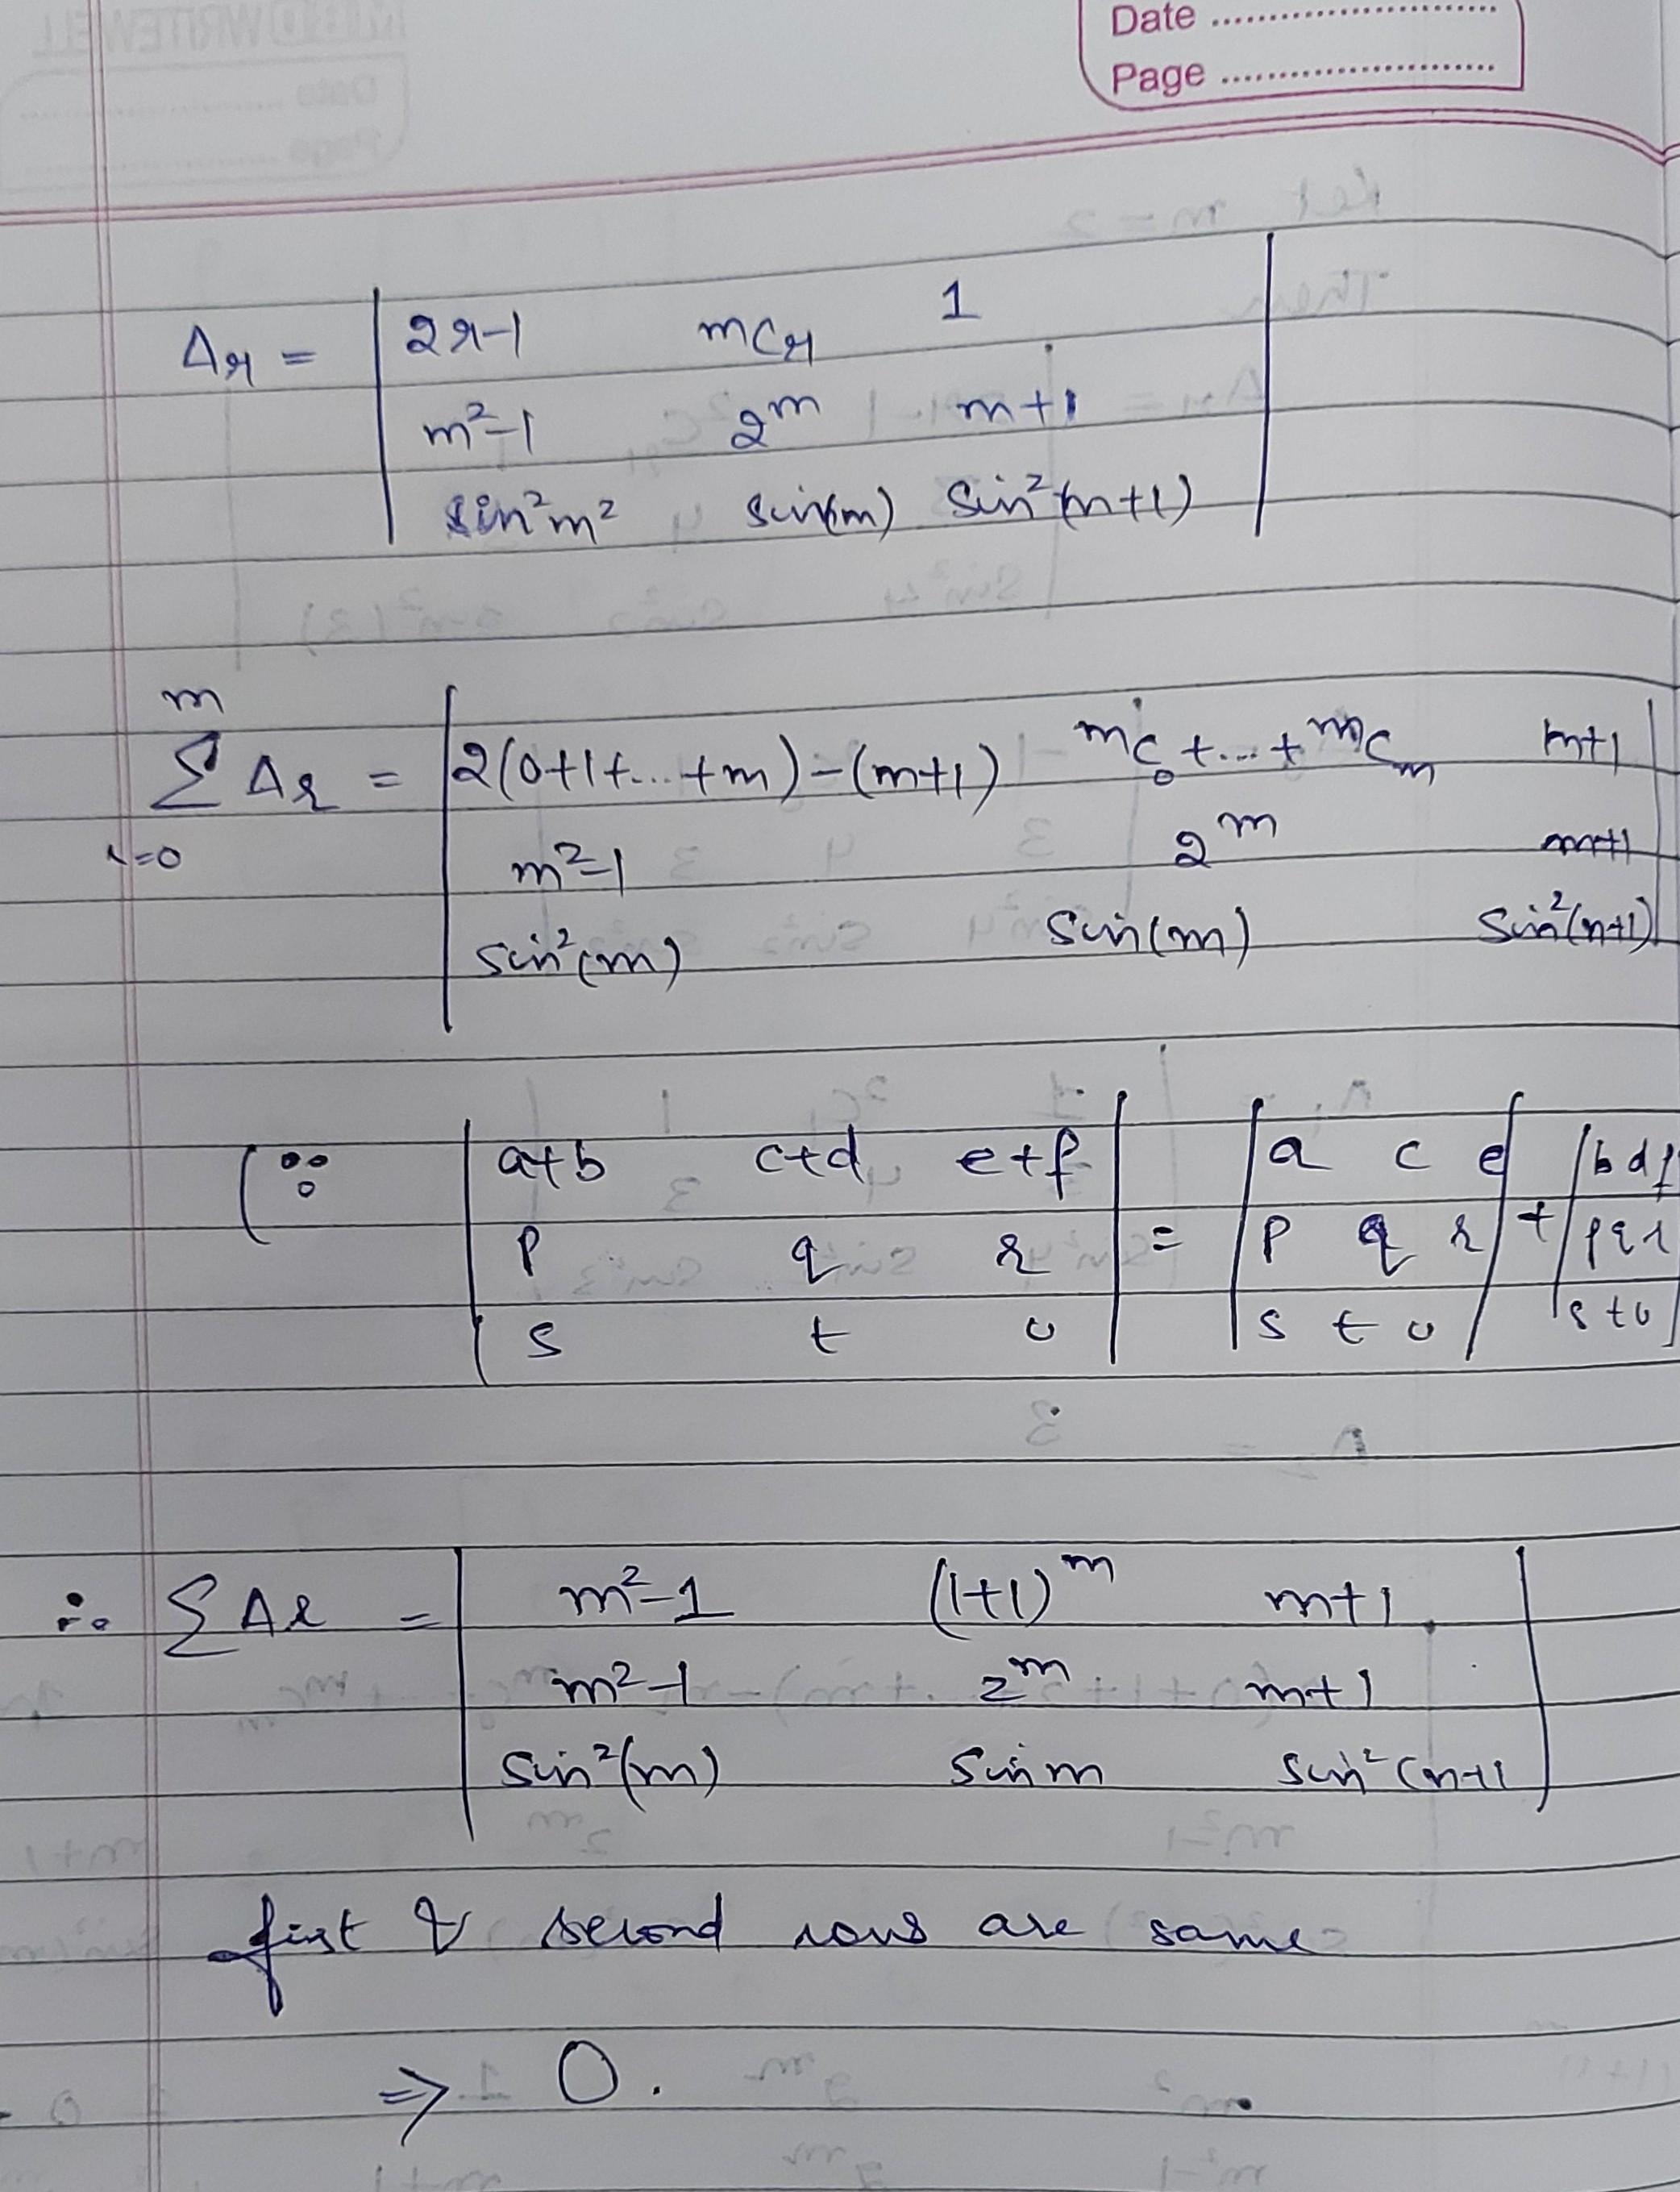 Date ..........
Page ..........
Δr = | 2r-1 mCr 1 |
| m²-1 2^m m+1 |
| sin²m² sin(m) sin²(m+1) |
m
Σ Δr = | 2(0+1+...+m)-(m+1) mC₀+...+mCm m+1 |
r=0 | m²-1 2^m m+1 |
| sin²(m) sin(m) sin²(m+1) |
(∵ | a+b c+d e+f | = | a c e | + | b d f |
| p q r | | p q r | | p q r |
| s t u | | s t u | | s t u |
∴ ΣΔr = | m²-1 (1+1)^m m+1 |
| m²-1 2^m m+1 |
| sin²(m) sin m sin²(m+1 |
first & second rows are same
⇒ 0.